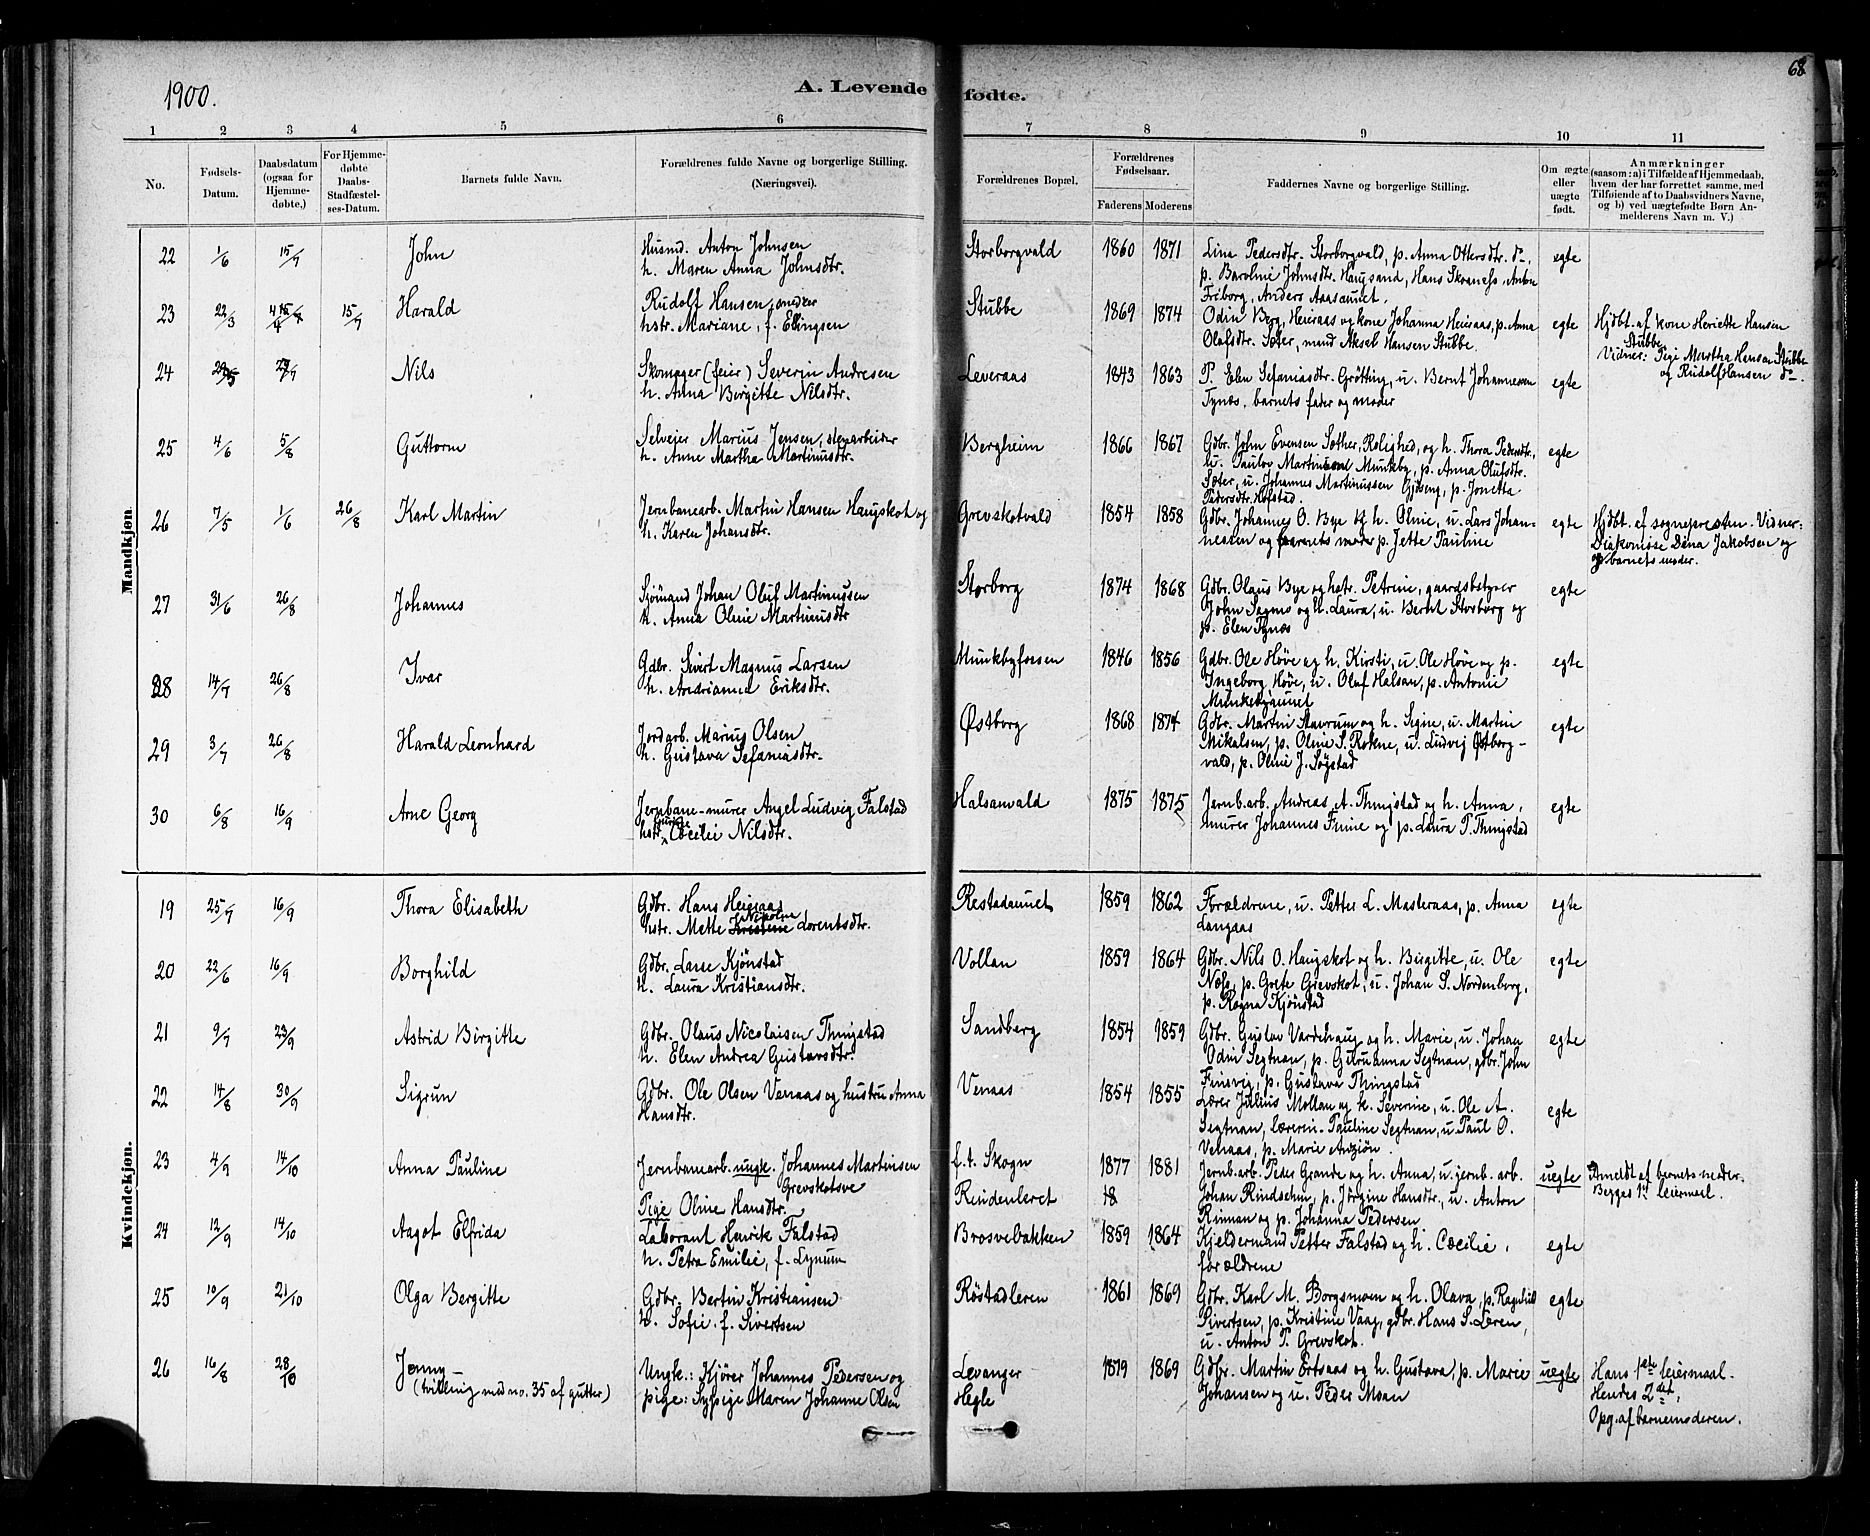 1900.
A. Levende fødte.
68
1 2 3 4 5 6 7 8 9 10 11
No.
Fødsels-Datum.
Daabsdatum (ogsaa for Hjemme-døbte,)
For Hjemme-døbte Daabs-Stadfæstel-ses-Datum.
Barnets fulde Navn.
Forældrenes fulde Navne og borgerlige Stilling. (Næringsvei).
Forældrenes Bopæl.
Forældrenes Fødselsaar.
Faderens Moderens
Faddernes Navne og borgerlige Stilling.
Om ægte eller uægte født.
Anmærkninger (saasom: a) i Tilfælde af Hjemmedaab, hvem der har forrettet samme, med Tilføiende af to Daabsvidners Navne, og b) ved uægtefødte Børn An-melderens Navn m. V.)
Mandkjøn.
22 1/6 15/7 John
Husmd. Anton Johnsen
h. Maren Anna Johnsdtr.
Storborgvald 1860 1871
Lina Pedersdtr. Storborgvald, p. Anna Ottersdtr. do,
p. Baroline Johnsdtr. Haugsand, Hans Skoness, Anton
Friborg, Anders Aasaunet.
egte
23 22/3 15/7 Harald
Rudolf Hansen, smed
hstr. Mariane, f. Ellingsen
Stubbe 1869 1874
Odin Berg, Heieraas og kone Johanna Heieraas, p. Anna
Olafsdtr. Sæter, mand Aksel Hansen Stubbe.
egte
Hjdbt. af kone Henriette Hansen
Stubbe
Vidner: Pige Martha Hansen Stubbe
og Rudolf Hansen do.
24 29/7 Nils
Skomager (feier) Severin Andresen
h. Anna Birgitte Nilsdtr.
Leveraas 1843 1863
P. Elen Sefaniasdtr. Grøtting, u. Bernt Johannessen
Tynes, barnets fader og moder
egte
25 4/6 5/8 Guttorm
Selveier Marius Jensen, stenarbeider
h. Anne Martha Martinusdtr.
Bergheim 1866 1867
Gdbr. John Evensen Sother, Rolighed, og h. Thora Pedersdtr,
u. Paulov Martinssen Munkby, p. Anna Olufsdtr.
Sæter, u. Johannes Martinussen Gjøseng, p. Jonetta
Pedersdtr. Hofstad.
egte
26 7/5 1/6 26/8 Karl Martin
Jernbanearb. Martin Hansen Haugskot og
h. Karen Johansdtr.
Grevskotvald 1854 1858
Gdbr. Johannes O. Bye og h. Oline, u. Lars Johan-
nessen og barnets moder p. Jette Pauline
egte
Hjdbt. af sognepresten. Vidner:
Diakonisse Dina Jakobsen og
barnets moder.
27 31/6 26/8 Johannes
Sjømand Johan Oluf Martinussen
h. Anna Oline Martinusdtr
Storborg 1874 1868
Gdbr. Olaus Bye og hstr. Petrine, gaardsbstyrer
John Sagmo og h. Laura, u. Bernt Storborg og
p. Elen Tynæs
egte
28 14/7 26/8 Ivar
Gdbr. Sivert Magnus Larsen
h. Andrianna Eriksdtr.
Munkbyfossen 1846 1856
Gdbr. Ole Høve og h. Kirsti, u. Ole Høve og p.
Ingeborg Høve, u. Oluf Halsan, p. Antonie
Munkebyaunet
egte
29 3/7 26/8 Harald Leonhard
Jordarb. Marius Olsen
h. Gustava Sefaniasdtr.
Østborg 1868 1874
Gdbr. Martin Stavrum og h. Signe, u. Martin
Mikalsen, p. Oline S. Rokne, u. Ludvig Østborg-
vald, p. Oline J. Søgstad
egte
30 6/8 16/9 Arne Georg
Jernbane-murer Angel Ludvig Falstad
hstr. Cecilie Nilsdtr.
Halsanvald 1875 1875
Jernb.arb. Andreas A. Thingstad og h. Anna,
murer Johannes Finne og p. Laura P. Thingstad
egte
Kvindekjøn.
19 25/7 16/9 Thora Elisabeth
Gdbr. Hans Heieraas
Nikoline
hstr. Mette Kristine Lorentsdtr.
Restadaunet 1859 1862
Forældrene, u. Petter L. Masteraas, p. Anna
Langaas
egte
20 22/6 16/9 Borghild
Gdbr. Lasse Kjønstad
h. Laura Kristiansdtr.
Vollan 1859 1864
Gdbr. Nils O. Haugskot og h. Birgitte, u. Ole
Næss, p. Grete Grevskot, u. Johan S. Nordenborg,
p. Ragna Kjønstad
egte
21 9/7 23/9 Astrid Birgitte
Gdbr. Olaus Nicolaisen Thingstad
h. Elen Andrea Gustavsdtr.
Sandberg 1854 1859
Gdbr. Gustav Vardehaug og h. Marie, u. Johan
Odin Segtnan, p. Guruanna Segtnan, gdbr. John
Finsvig, p. Gustava Thingstad
egte
22 14/8 30/9 Sigrun
Gdbr. Ole Olsen Venaas og hustru Anna
Hansdtr.
Venaas 1854 1855
Lærer Julius Mollan og h. Severine, u. Ole A.
Segtnan, lærerin. Pauline Segtnan, u. Paul O.
Venaas, p. Marie Anziøn.
egte
23 4/9 14/10 Anna Pauline
Jernbanearb. ungk. Johannes Martinsen
Grevskotsve
Pige Oline Hansdtr.
f. t. Skogn
Rindenleret
1877 1881
18
Jernb.arb. Peder Grande og h. Anna, u. jernb. arb.
Johan Rindsehm, p. Jørgine Hansdtr, u. Anton
Rinnan og p. Johanna Pedersen
uegte
Anmeldt af barnets moder.
Begges 1ste leiermaal.
24 12/9 14/10 Aagot Elfrida
Laborant Henrik Falstad
h. Petra Emilie, f. Lynum
Brosvebakken 1859 1864
Kjeldermand Petter Falstad og h. Cæcilie,
forældrene
egte
25 10/9 21/10 Olga Bergitte
Gdbr. Bertin Kristiansen
h. Sofie f. Sivertsen
Røstadleren 1861 1869
Gdbr. Karl M. Borgsmoen og h. Olava, p. Ragnhild
Sivertsen, p. Kristine Vaag, gdbr. Hans S. Leren,
u. Anton P. Grevskot.
egte
26 16/8 28/10 Jenny
(tvilling med no. 35 af gutter)
Ungk.: Kjører Johannes Pedersen og
pige: Sypige Maren Johanne Olsen
Levanger
Hegle
1879 1869
Gdbr. Martin Ertsaas og h. Gustava, p. Marie
Johansen og u. Peder Moan
uegte
Hans 1ste leiermaal.
Hendes 2det,
Opg. af barnemoderen.